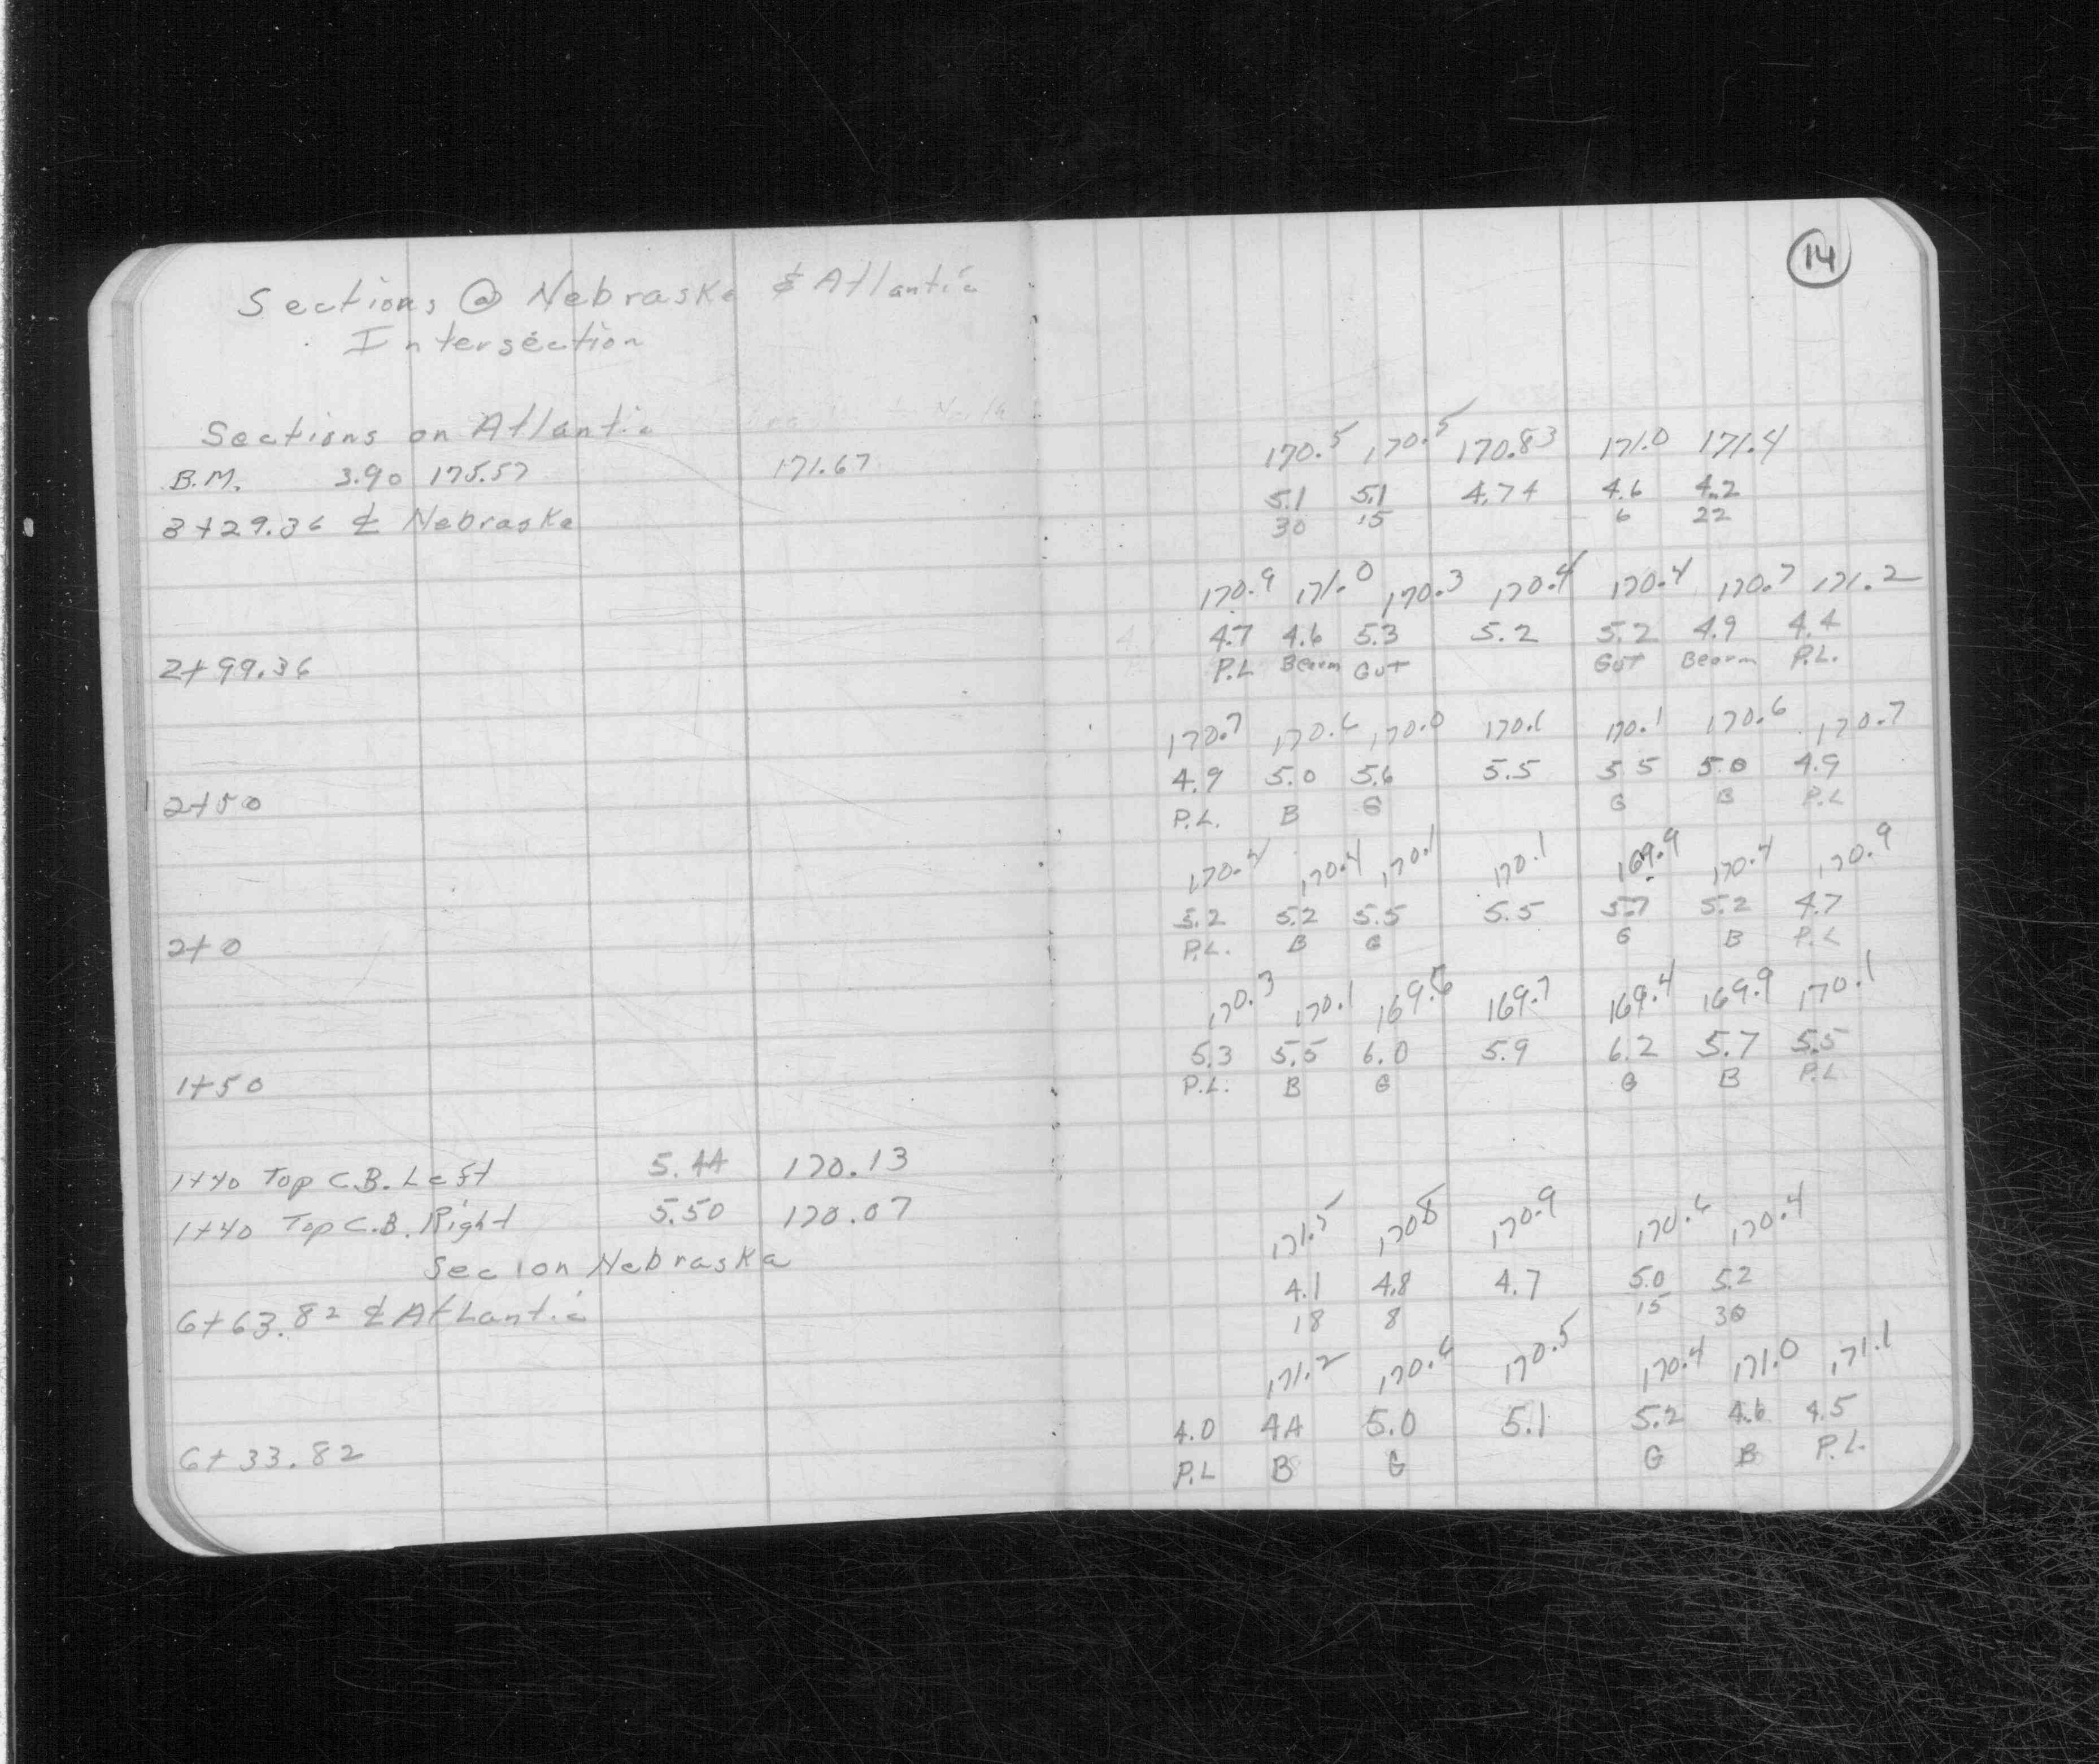 14
Sections @ Nebraska & Atlantic
Intersection
Sections on Atlantic
B.M. 3.90 175.57 171.67
3+29.36 ℄ Nebraska
170.5 170.5 170.83 171.0 171.4
5.1 5.1 4.74 4.6 4.2
30 15 6 22
170.9 171.0 170.3 170.4 170.4 170.7 171.2
4.7 4.6 5.3 5.2 5.2 4.9 4.4
2+99.36 P.L Bearm Gut Gut Bearm P.L.
170.7 170.6 170.0 170.1 170.1 170.6 170.7
4.9 5.0 5.6 5.5 5.5 5.0 4.9
2+50 P.L. B G G B P.L
170.4 170.4 170.1 170.1 169.9 170.4 170.9
5.2 5.2 5.5 5.5 5.7 5.2 4.7
2+0 P.L. B G G B P.L
170.3 170.1 169.6 169.7 169.4 169.9 170.1
5.3 5.5 6.0 5.9 6.2 5.7 5.5
1+50 P.L. B G G B P.L
1+40 Top C.B. Left 5.44 170.13
1+40 Top C.B. Right 5.50 170.07
Sec ion Nebraska
171.5 170.8 170.9 170.6 170.4
4.1 4.8 4.7 5.0 5.2
6+63.82 ℄ Atlantic 18 8 15 30
171.2 170.6 170.5 170.4 171.0 171.1
4.0 4.4 5.0 5.1 5.2 4.6 4.5
6+33.82 P.L B G G B P.L.